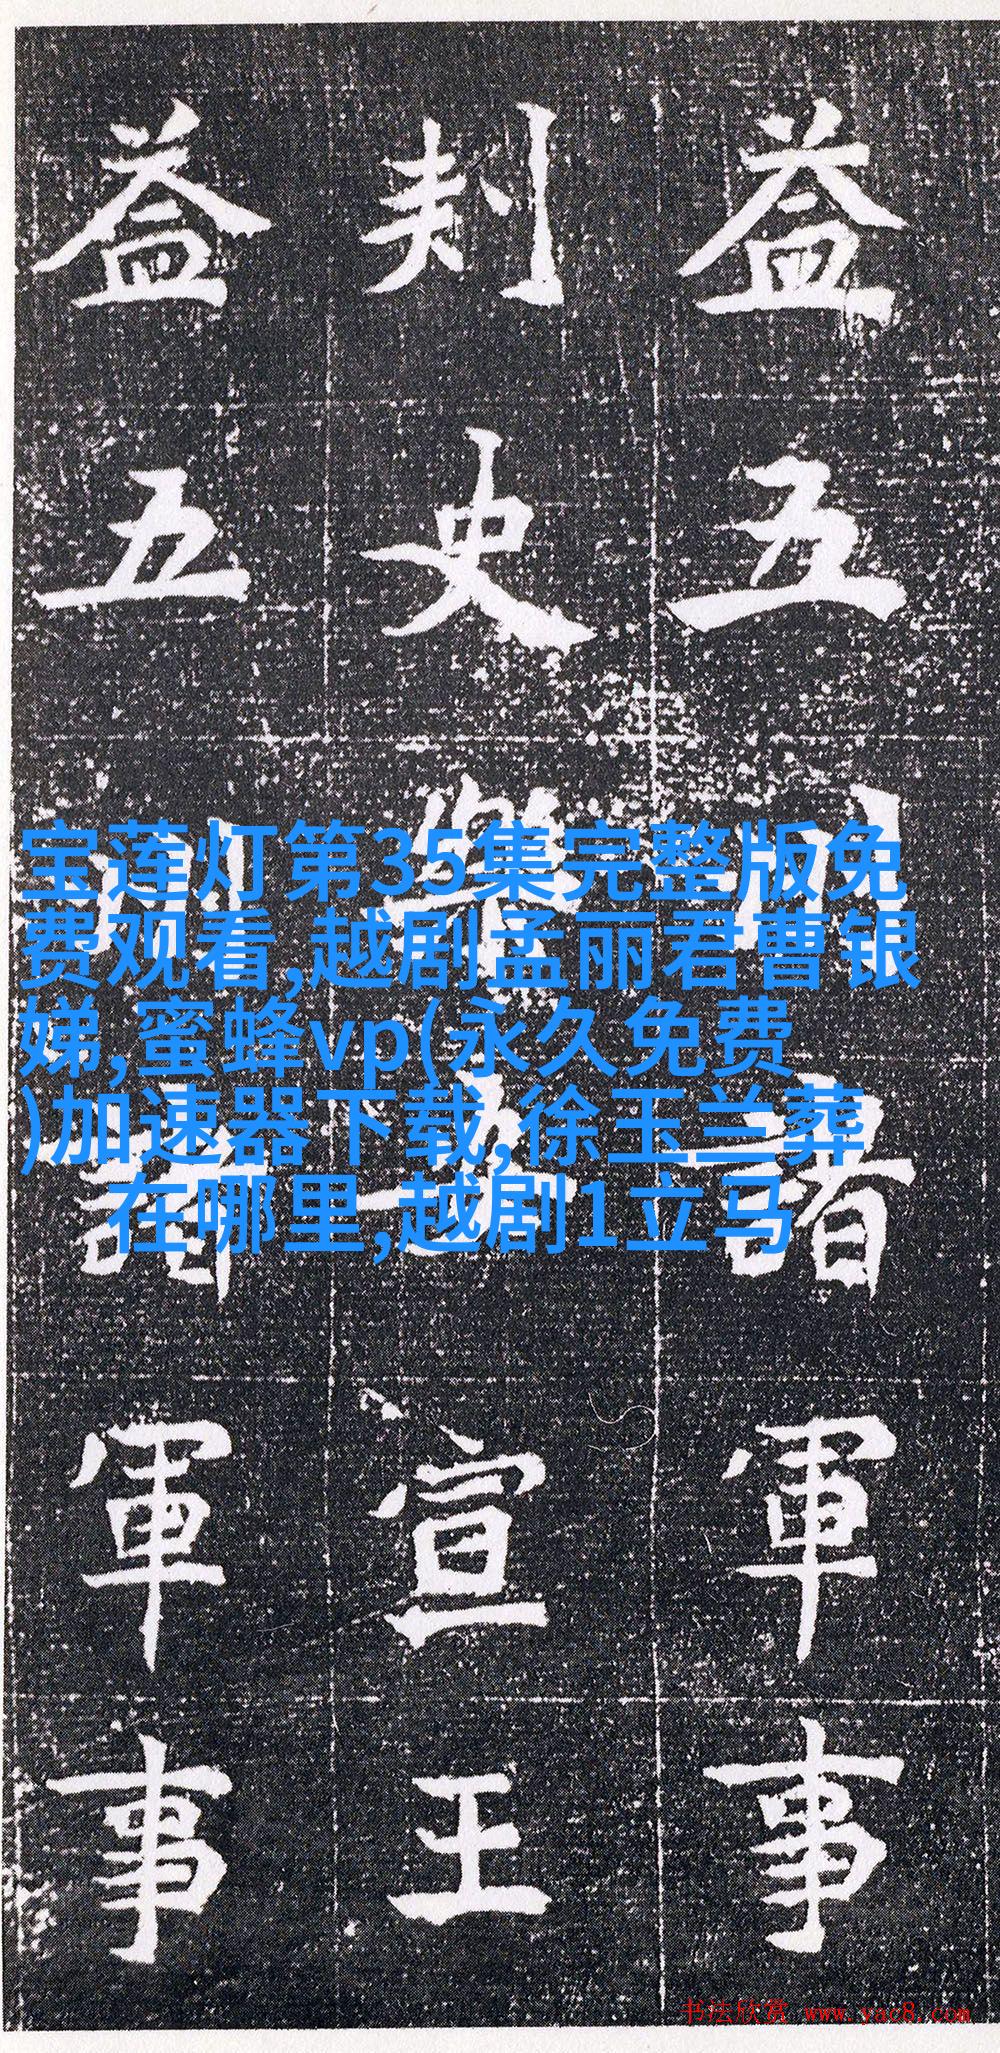 益五州□諸軍事
刾史樂□宣王
益五州諸軍事
宝莲灯第35集完整版免
费观看,越剧孟丽君曹银
娣,蜜蜂vp(永久免费
)加速器下载,徐玉兰葬
在哪里,越剧1立马
书法欣赏 www.yac8.com